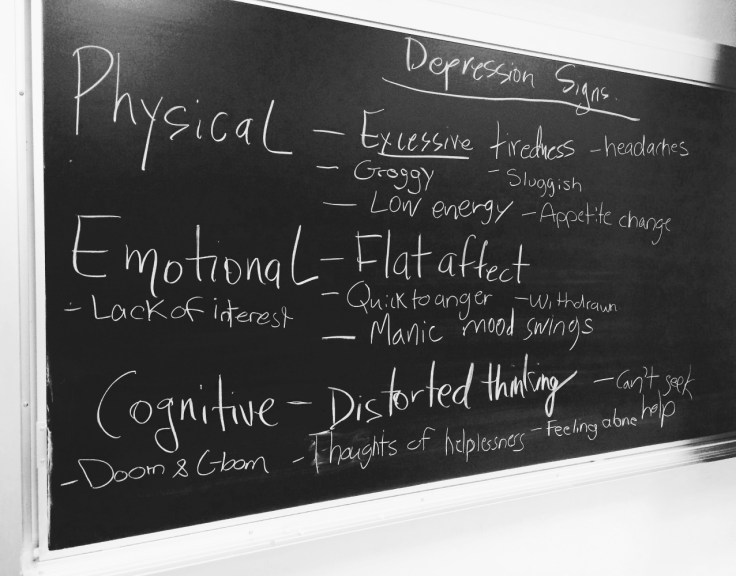 Depression Signs.
Physical - Excessive tiredness - headaches
- Groggy - Sluggish
- Low energy - Appetite change
Emotional - Flat affect
- Lack of interest - Quick to anger - Withdrawn
- Manic mood swings
Cognitive - Distorted thinking - Can't seek help
- Doom & Gloom - Thoughts of helplessness - Feeling alone